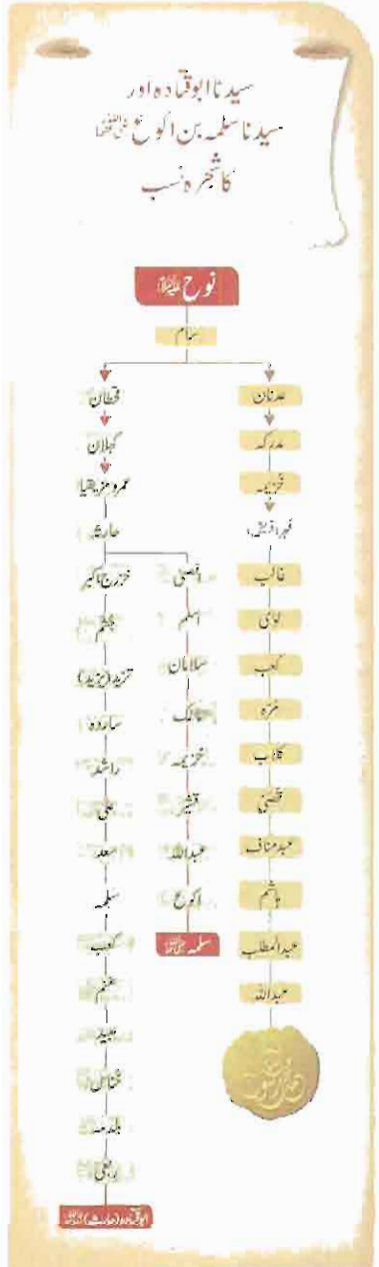 سیدنا ابوقتادہ اور
سیدنا سلمہ بن اکوع رضی اللہ عنہما
کا شجرہ نسب
نوح علیہ السلام
سام
عدنان
مدرکہ
خزیمہ
فہر (قریش)
غالب
لوی
کعب
مرہ
کلاب
قصی
عبدمناف
ہاشم
عبدالمطلب
عبداللہ
قحطان
کہلان
عمرو مزیقیا
حارثہ
افصی
اسلم
سلامان
مالک
خزیمہ
قشیر
عبداللہ
اکوع
سلمہ رضی اللہ عنہ
خزرج اکبر
جشم
تزید (یزید)
ساردہ
راشد
علی
سعد
سلمہ
کعب
غنم
عبید
خناس
بلدمہ
ربعی
ابوقتادہ (حارث) رضی اللہ عنہ